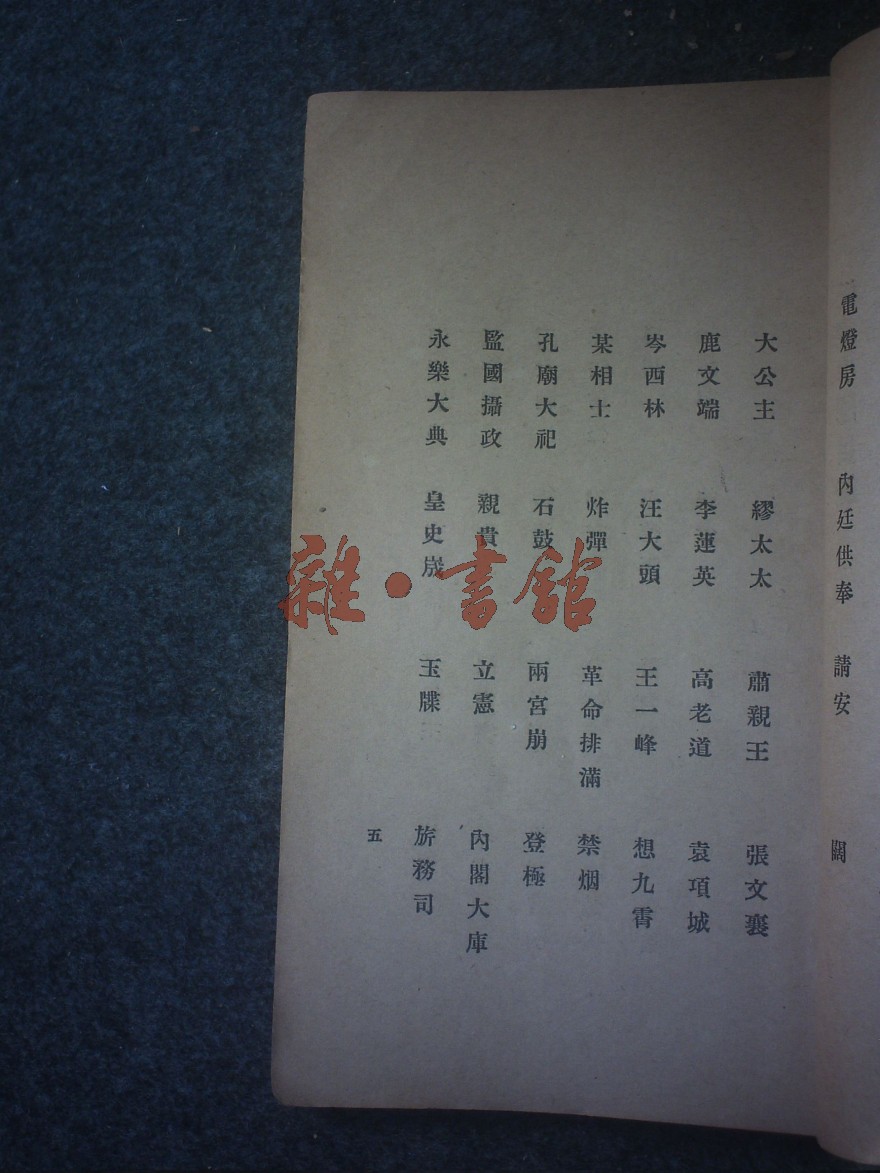 電燈房 內廷供奉 請安 闊
大公主 繆太太 肅親王 張文襄
鹿文端 李蓮英 高老道 袁項城
岑西林 汪大頭 王一峰 想九霄
某相士 炸彈 革命排滿 禁烟
孔廟大祀 石鼓 兩宮崩 登極
監國攝政 親貴 立憲 內閣大庫
永樂大典 皇史宬 玉牒 旂務司
五
雜·書館